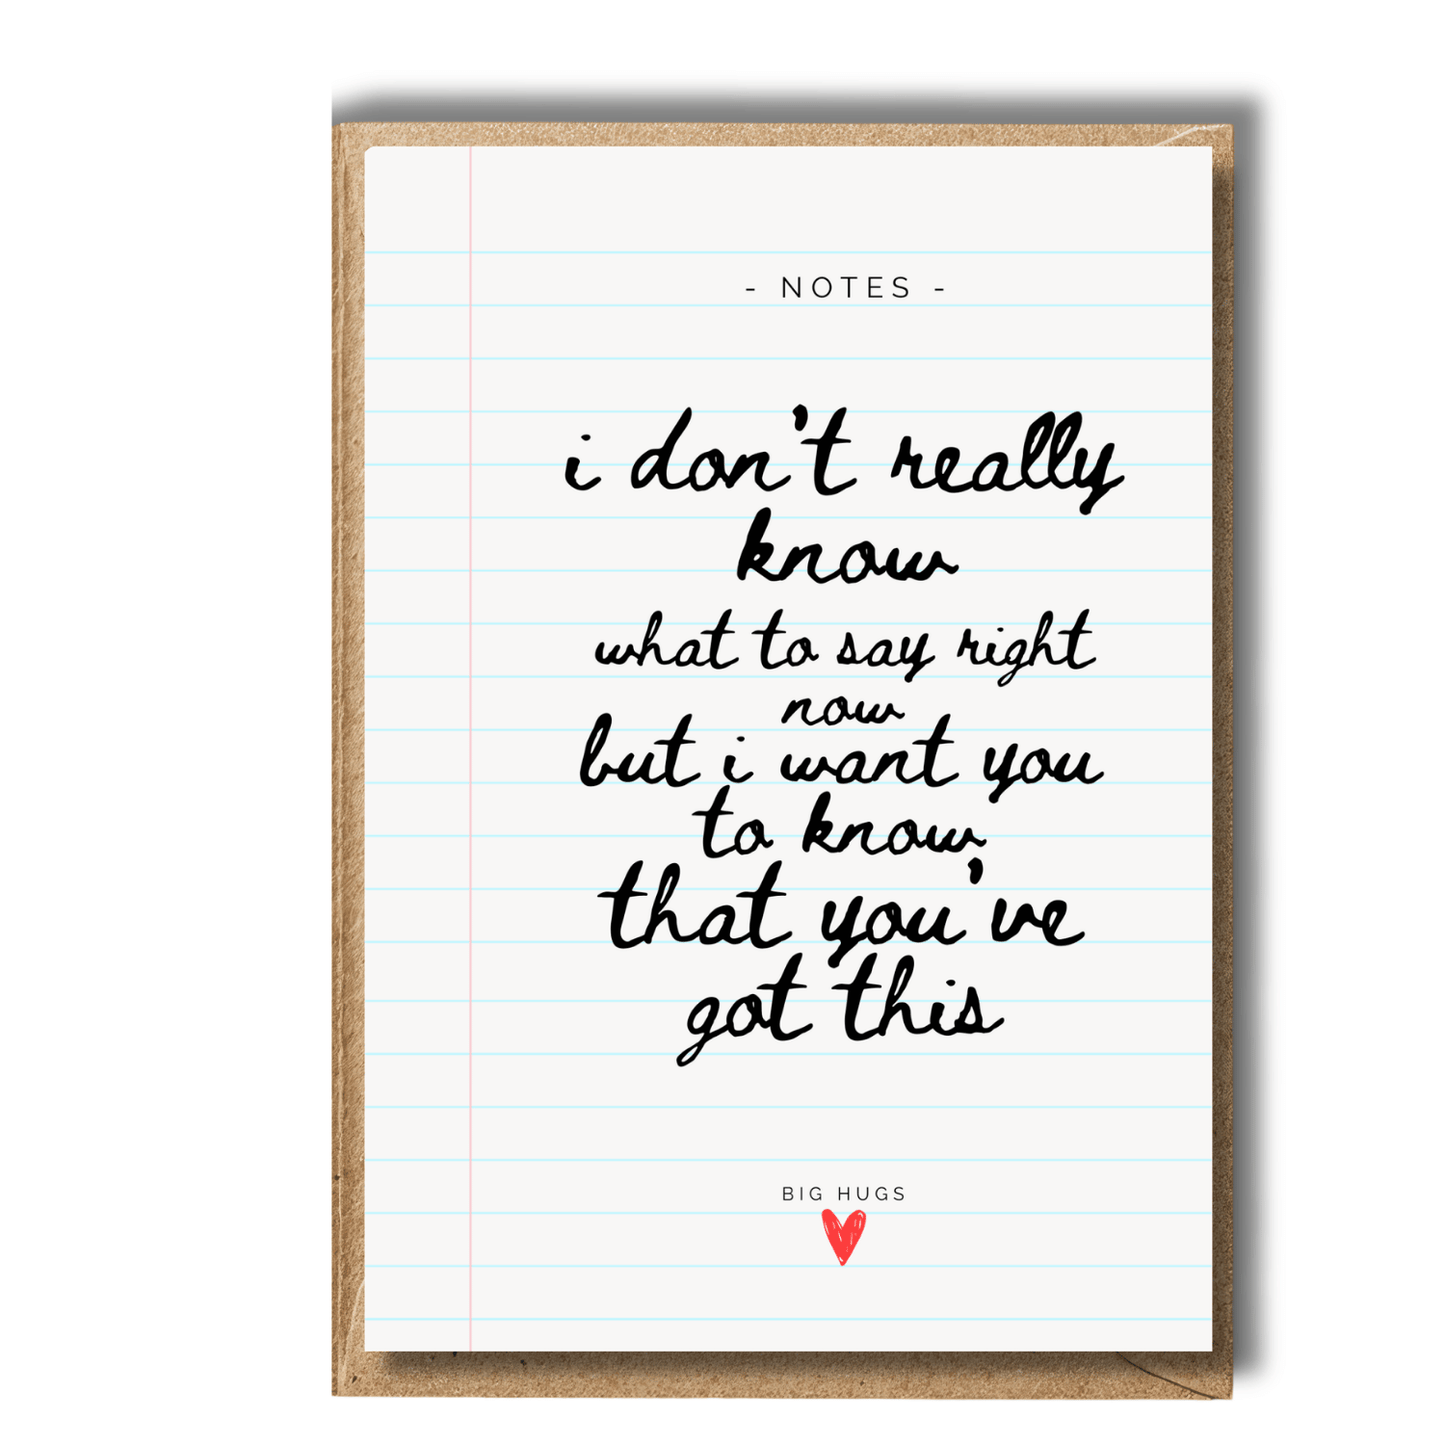 - NOTES -
i don't really
know
what to say right
now
but i want you
to know
that you've
got this
BIG HUGS